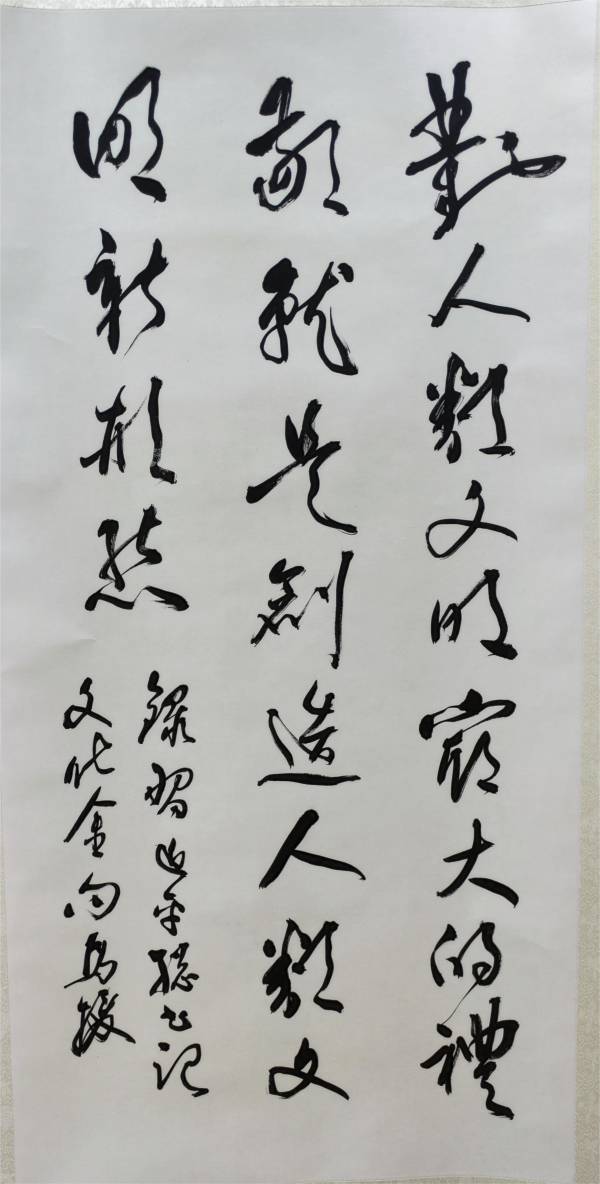 對人類文明最大的禮
敬就是創造人類文
明新形態
錄習近平總書记
文化金句馬媛